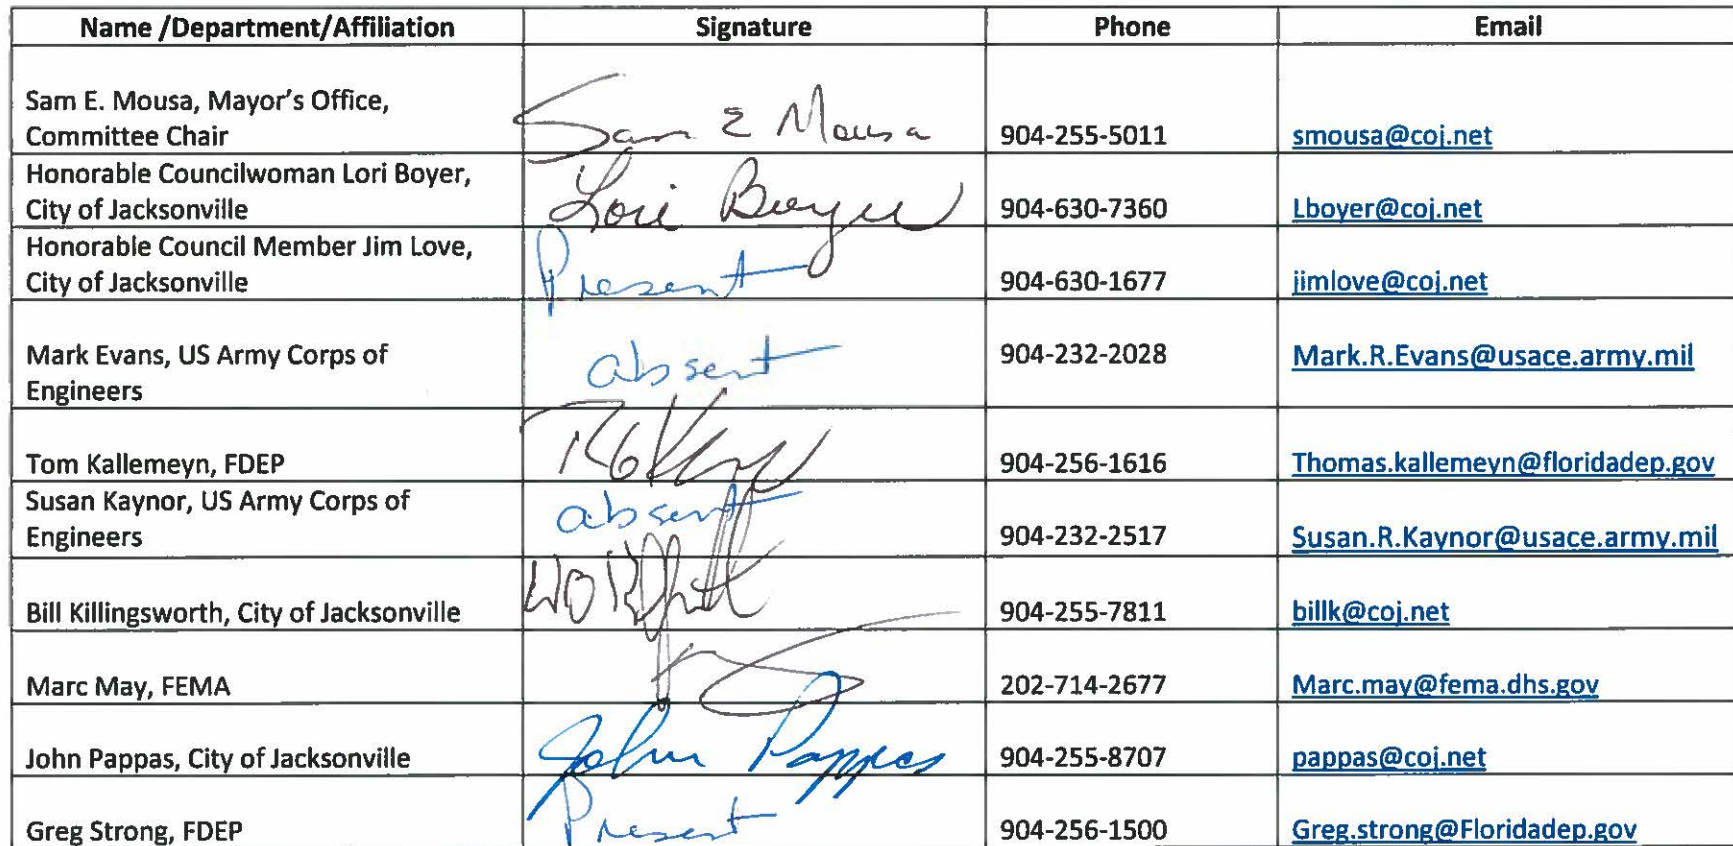 Name /Department/Affiliation Signature Phone Email
Sam E. Mousa, Mayor's Office,
Committee Chair Sam E Mousa 904-255-5011 smousa@coj.net
Honorable Councilwoman Lori Boyer,
City of Jacksonville Lori Boyer 904-630-7360 Lboyer@coj.net
Honorable Council Member Jim Love,
City of Jacksonville Present 904-630-1677 jimlove@coj.net
Mark Evans, US Army Corps of
Engineers absent 904-232-2028 Mark.R.Evans@usace.army.mil
Tom Kallemeyn, FDEP 904-256-1616 Thomas.kallemeyn@floridadep.gov
Susan Kaynor, US Army Corps of
Engineers absent 904-232-2517 Susan.R.Kaynor@usace.army.mil
Bill Killingsworth, City of Jacksonville 904-255-7811 billk@coj.net
Marc May, FEMA 202-714-2677 Marc.may@fema.dhs.gov
John Pappas, City of Jacksonville John Pappas 904-255-8707 pappas@coj.net
Greg Strong, FDEP Present 904-256-1500 Greg.strong@Floridadep.gov